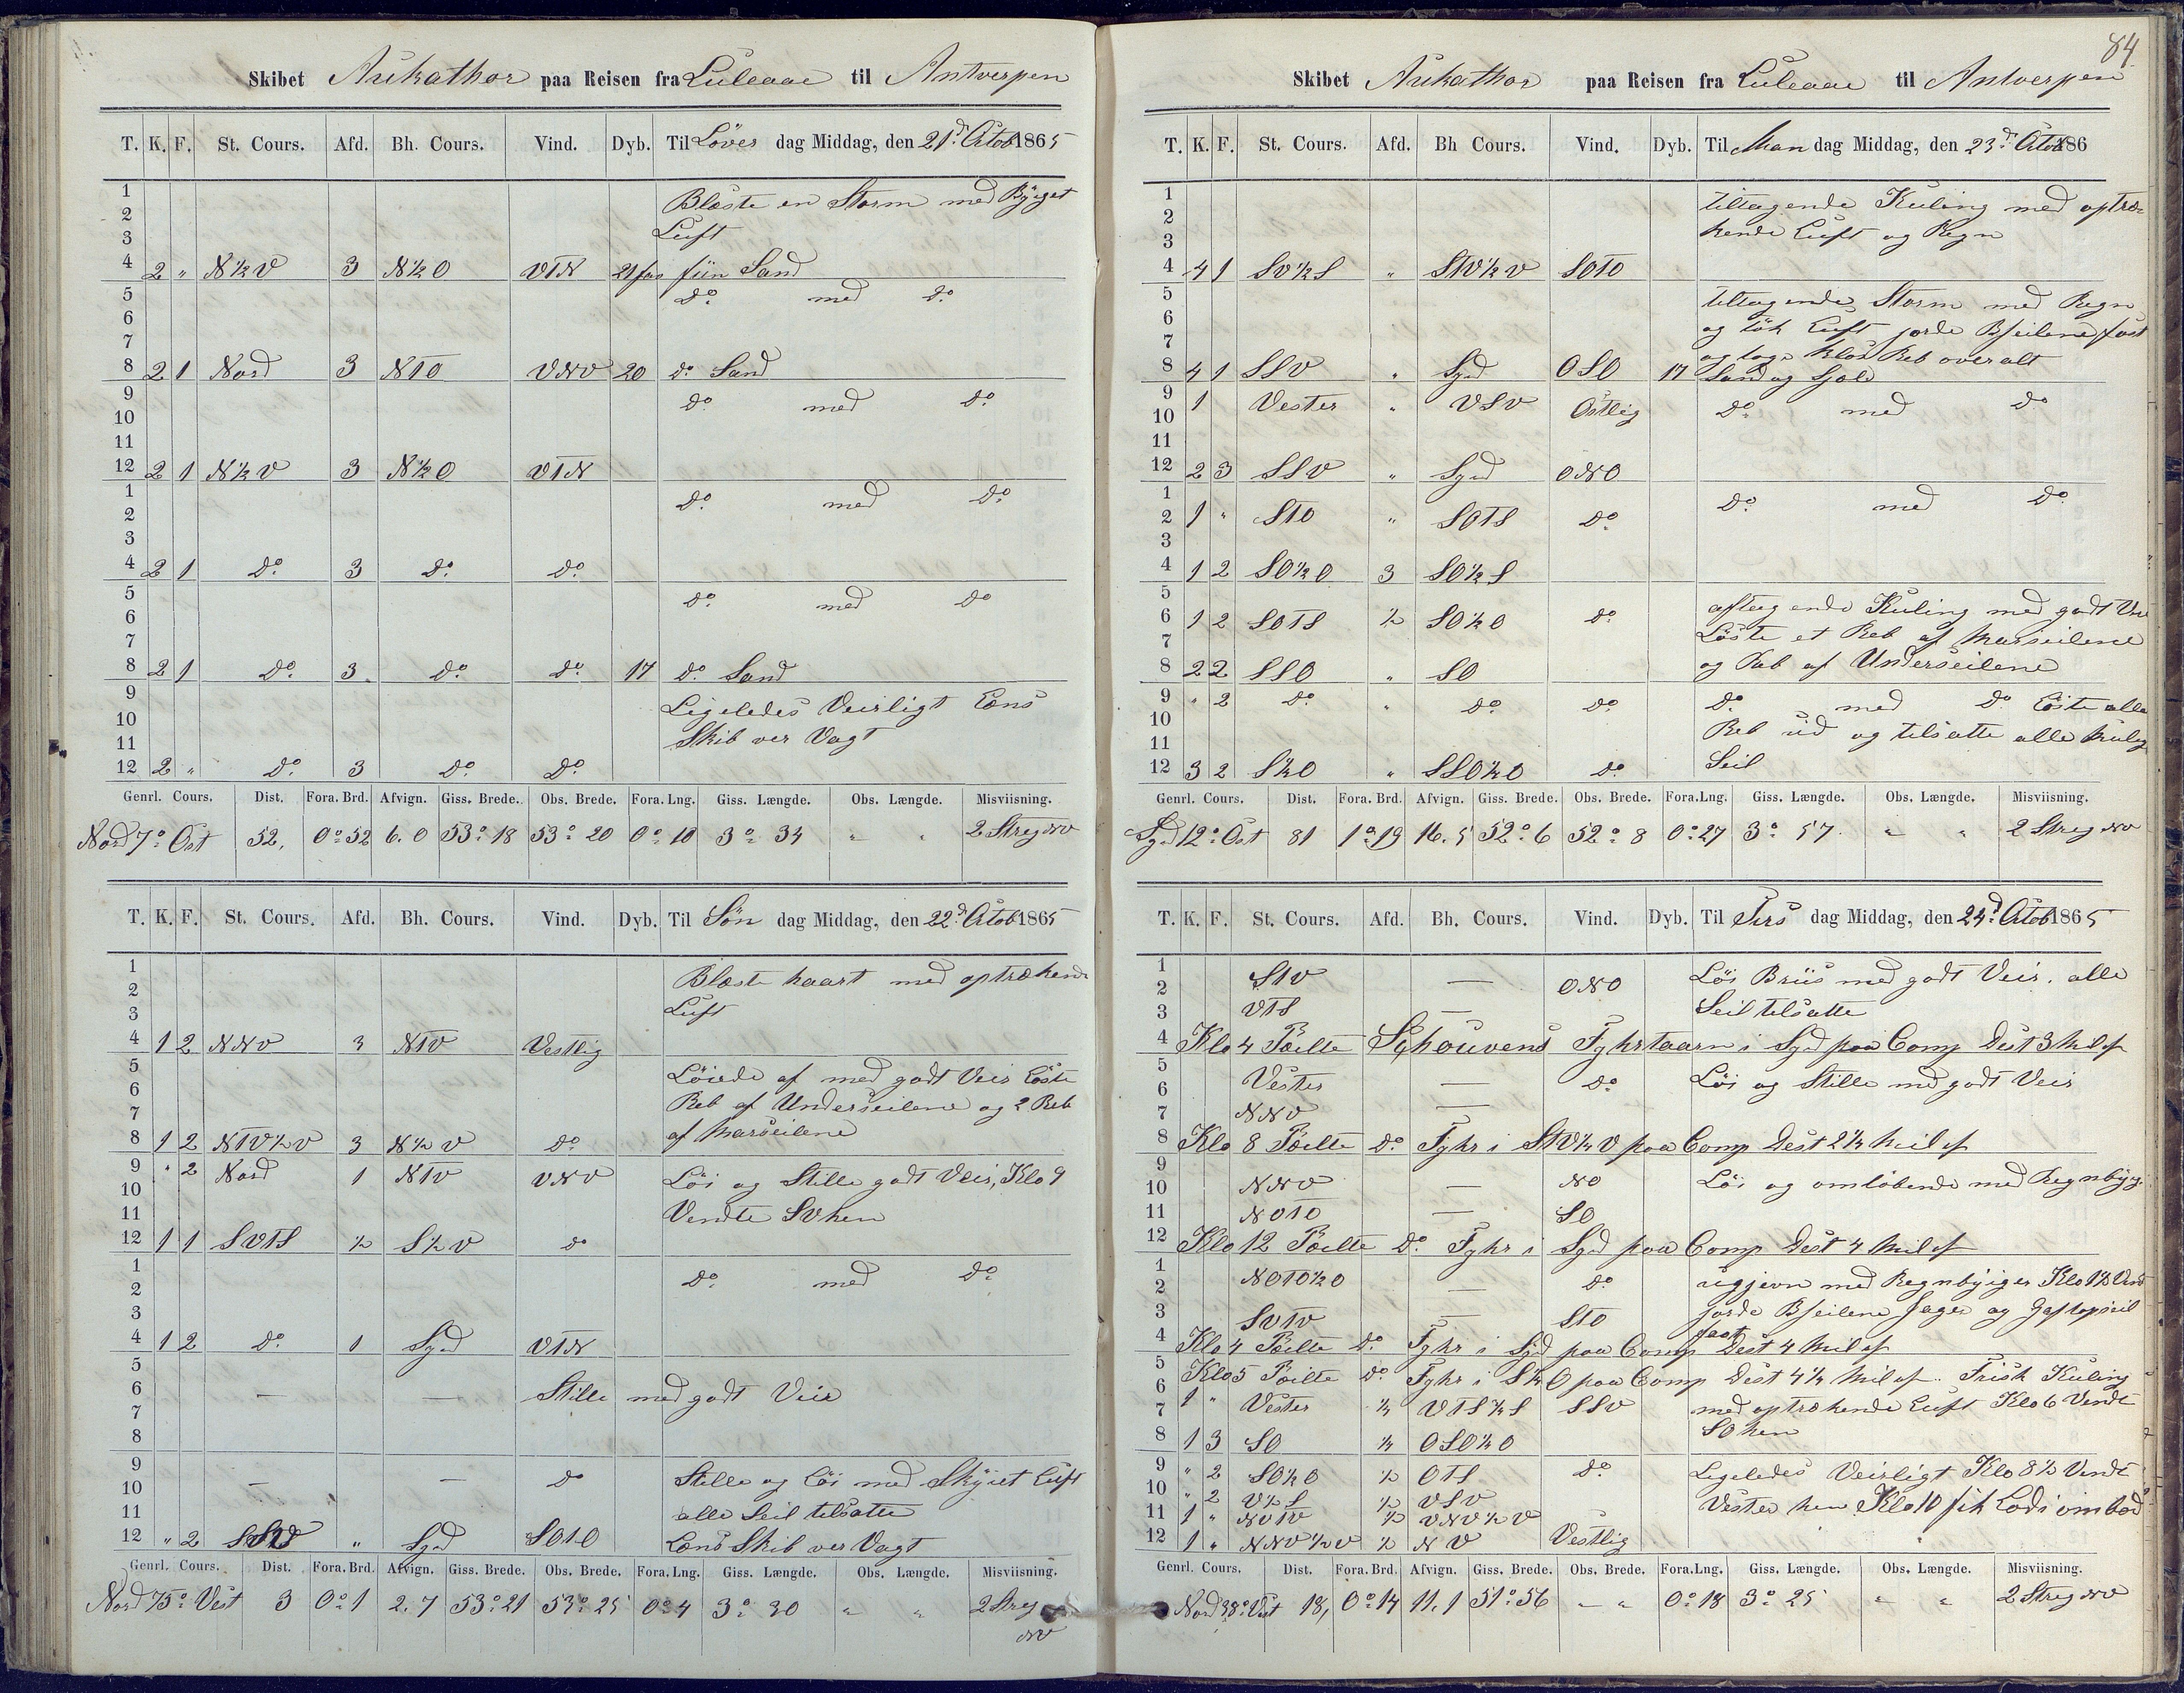 Skibet Aukathor paa Reisen fra Luleaae til Antverpen
T. K. F. St. Cours. Afd. Bh. Cours. Vind. Dyb. Til Löves dag Middag, den 21d Octob 1865
1 Blæste en Storm med Byget
2
3 Luft
4 2 " N½V 3 N½O VTN 21 fav fiin Sand
5 Do med Do
6
7
8 2 1 Nord 3 NTO VNV 20 do Sand
9 Do med Do
10
11
12 2 1 N½V 3 N½O VTN
1 Do med Do
2
3
4 2 1 Do 3 Do Do
5 Do med Do
6
7
8 2 1 Do 3 Do Do 17 do Sand
9 Ligeledes Veirligt Læns
10
11 Skib ver Vagt
12 2 " Do 3 Do Do
Genrl. Cours. Dist. Fora. Brd. Afvign. Giss. Brede. Obs. Brede. Fora. Lng. Giss. Længde. Obs. Længde. Misviisning.
Nord 7° Ost 52, 0°52 6.0 53°18 53°20 0°10 3°34 " " 2 Streg NV
T. K. F. St. Cours. Afd. Bh. Cours. Vind. Dyb. Til Sön dag Middag, den 22d Octob 1865
1 Blæste haart med optrækende
2
3 Luft
4 1 2 NNV 3 NTV Vestlig
5 Löiede af med godt Veir Löste
6 Reb af Underseilene og 2 Reb
7
8 1 2 NTV½V 3 N½V do af Marseilene
9 " 2 Nord 1 NTV VNV Löi og Stille godt Veir, Klo 9
10
11 Vendte SV hen
12 1 1 SVTS ½ S½V do
1 Do med Do
2
3
4 1 2 Do 1 Syd VTN
5
6 — — Stille med godt Veir
7
8
9 — — Do Stille og Löi med Skyiet Luft
10
11 alle Seil tilsatte
12 " 2 SSV " Syd SOTO Læns Skib ver Vagt
Genrl. Cours. Dist. Fora. Brd. Afvign. Giss. Brede. Obs. Brede. Fora. Lng. Giss. Længde. Obs. Længde. Misviisning.
Nord 75° Vest 3 0°1 2.7 53°21 53°25 0°4 3°30 " " 2 Streg
NV
84
Skibet Aukathor paa Reisen fra Luleaae til Antverpen
T. K. F. St. Cours. Afd. Bh Cours. Vind. Dyb. Til Man dag Middag, den 23d Octob 186
1 tiltagende Kuling med optræ-
2
3 kende Luft og Regn
4 4 1 SV½S " STV½V SOTO
5 tiltagende Storm med Regn
6 og tök Luft jorde Bseilene fast
7 og toge Klos Reb overalt
8 4 1 SSV " Syd OSO 17 Sand og Sjæl
9 1 Vester " VSV Ostlig Do med Do
10
11
12 2 3 SSV " Syd ONO
1 Do med Do
2 1 " STO " SOTS Do
3
4 1 2 SO½O 3 SO½S
5 aftagende Kuling med godt Veir
6 1 2 SOTS ½ SO½O Do Löste et Reb af Marseilene
7
8 2 2 SSO " SO og Reb af Underseilene
9 " 2 Do " Do Do Do med Do Löste alle
10 Reb ud og tilsatte alle
11
12 3 2 S½O " SSO½O Do Seil
Genrl. Cours. Dist. Fora. Brd. Afvign. Giss. Brede. Obs. Brede. Fora. Lng. Giss. Længde. Obs. Længde. Misviisning.
Syd 12° Ost 81 1°19 16.5 52°6 52°8 0°27 3°57 " " 2 Streg NV
T. K. F. St. Cours. Afd. Bh. Cours. Vind. Dyb. Til Tirs dag Middag, den 24d Octob 1865
1 STV — ONO Löi Briis med godt Veir. alle
2
3 VTS — Seil tilsatte
4 Klo 4 Peilte Schouvens Fyhrtaarn i Syd paa Comp Dest 3 Mil af
5 Vester — Do Löi og Stille med godt Veir
6
7 NNV —
8 Klo 8 Peilte Do Fyhr i STV½V paa Comp Dest 2½ Mil af
9
10 NNV — NO Löi og omlöbende med Regnbyg.
11 NOTO — SO
12 Klo 12 Peilte Do Fyhr i Syd paa Comp Dest 4 Mil af
1
2 NOTO½O — Do ugjevn med Regnbyiger Klo 1½ Vend
3 SVTV — STO jorde Bseilene Jager og Gaftopseil
fast
4 Klo 4 Peilte Do Fyhr i Syd paa Comp Dest 4 Mil af
5 Klo 5 Peilte Do Fyhr i S½O paa Comp Dest 4½ Mil af. Frisk Kuling
6
7 1 " Vester ½ VTS½S SSV med optrækende Luft Klo 6 Vendt
8 1 3 SO ½ OSO½O SO hen
9 " 2 SO½O ½ OTS Do Ligeledes Veirligt Klo 8½ Vendt
10 " 2 V½S ½ VSV Vester hen Klo 10 fik Lods ombord
11 1 " NVTV ½ VNV½V
12 1 " NNV½V ½ NV Vestlig
Genrl. Cours. Dist. Fora. Brd. Afvign. Giss. Brede. Obs. Brede. Fora. Lng. Giss. Længde. Obs. Længde. Misviisning.
Nord 38° Vest 18, 0°14 11.1 51°56 — " 0°18 3°25 " " 2 Streg NV